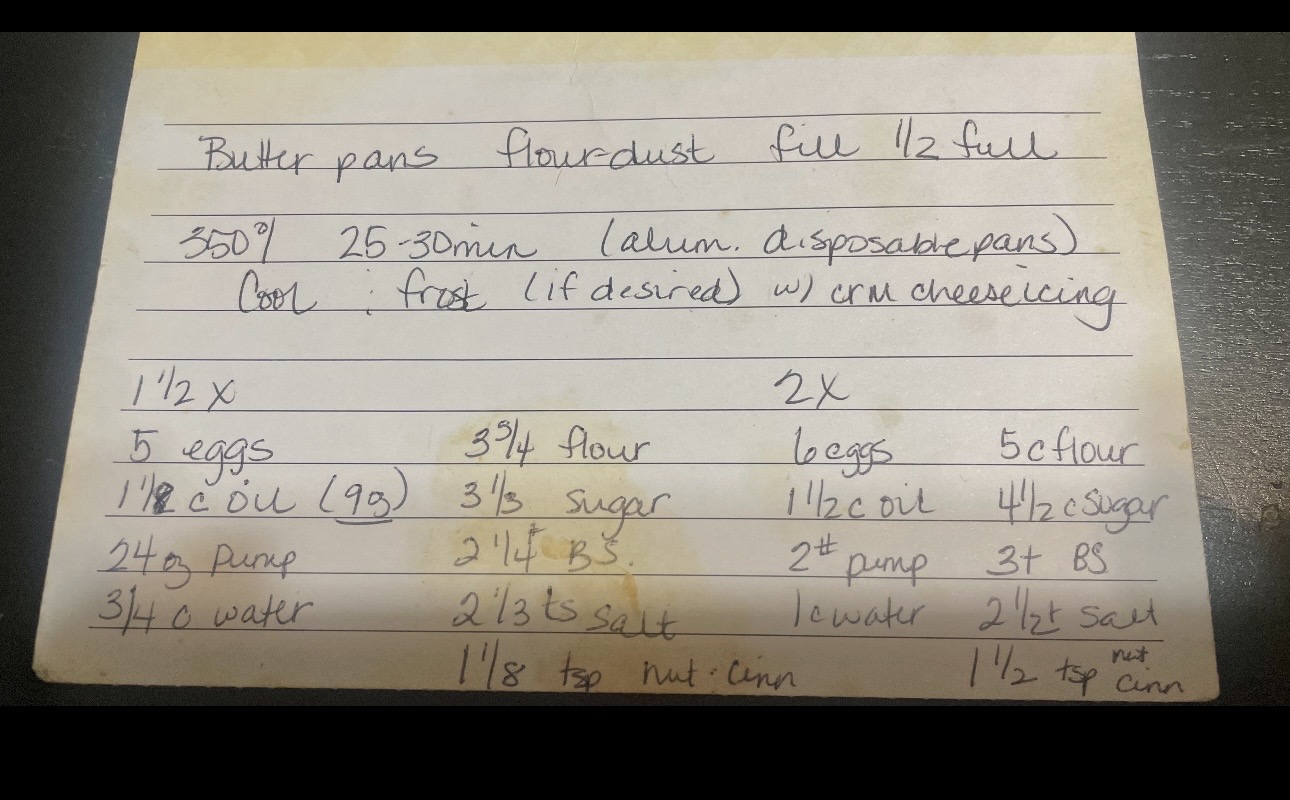 Butter pans flour-dust fill 1/2 full
350°/ 25-30min (alum. disposable pans)
Cool ; frost (if desired) w/ crm cheese icing
1 1/2 x 2x
5 eggs 3 3/4 flour 6 eggs 5c flour
1 1/8 c oil (9oz) 3 1/3 sugar 1 1/2 c oil 4 1/2 c sugar
24 oz pump 2 1/4 t BS. 2# pump 3t BS
3/4 c water 2 1/3 ts salt 1c water 2 1/2 t salt
1 1/8 tsp nut · cinn 1 1/2 tsp nut cinn